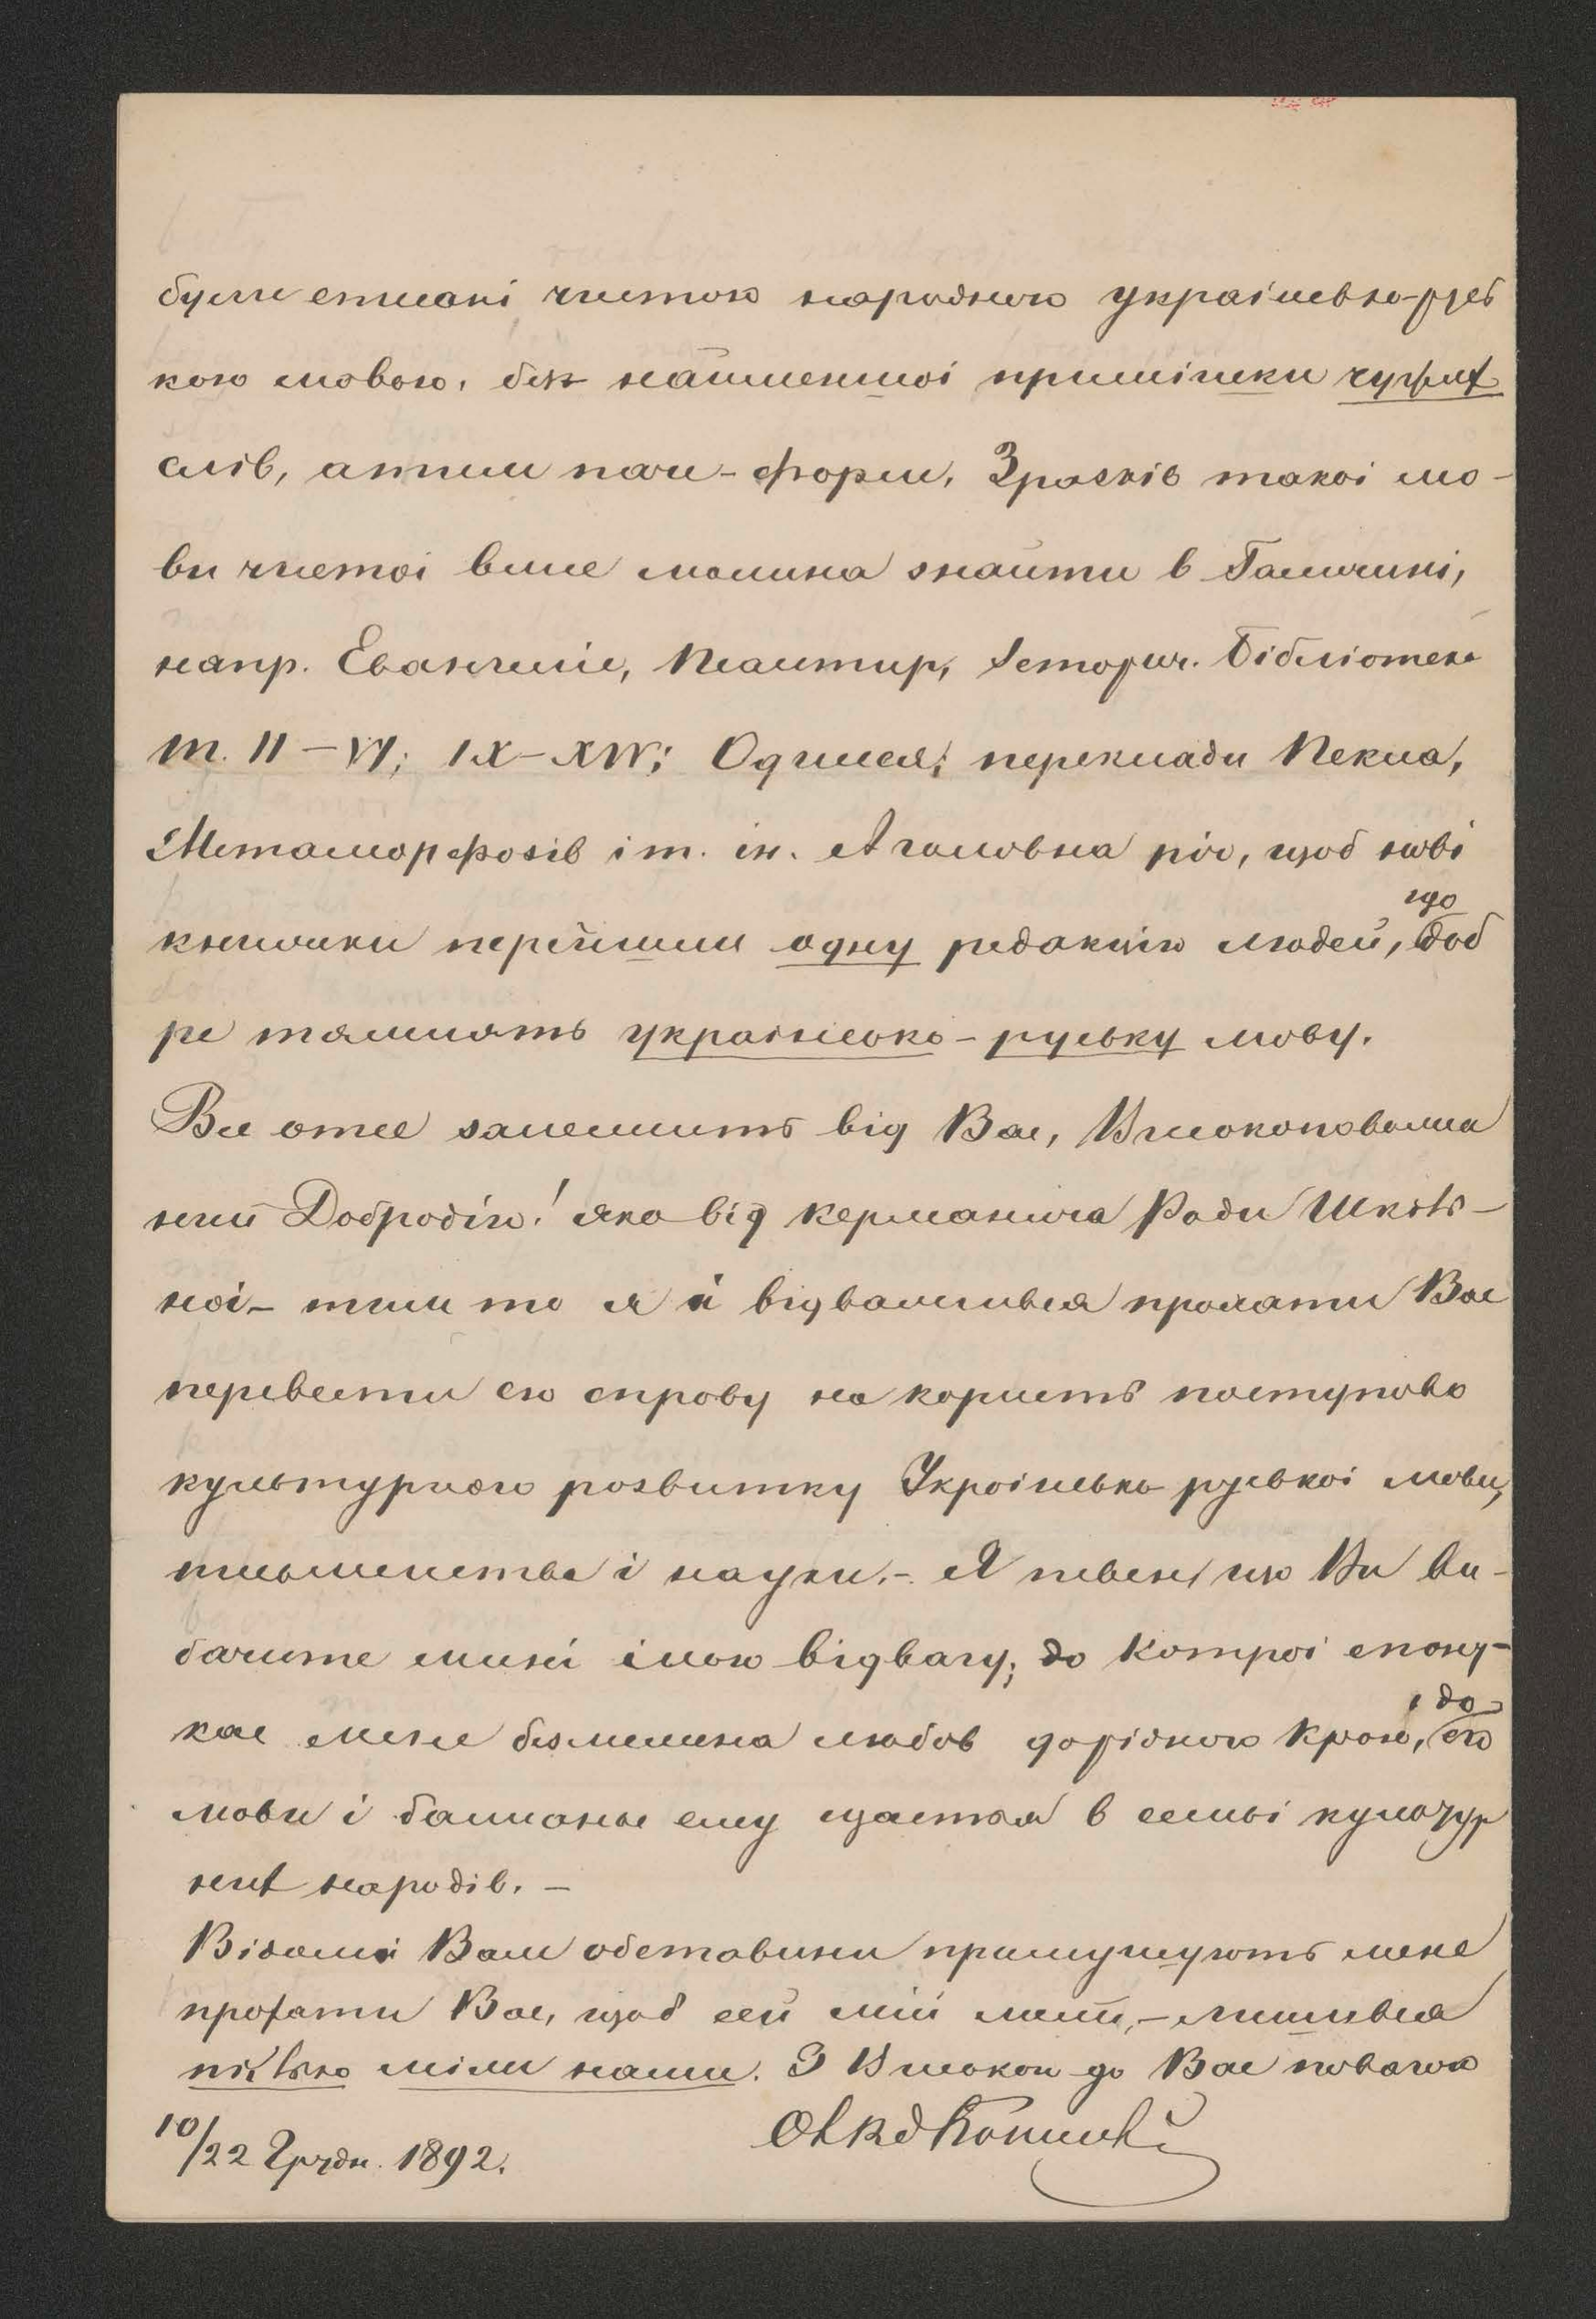 були списані чистою народньою україньско-рус
кою мовою, без найменшоі примішки чужих
слів, а тим пач-форм. Зрасків такоі мо-
ви чистоі вже можна знайти в Галичині,
напр. Евангиліє, Псалтир, Історич. бібліотека
т. II – VI; IX – XIV; Одиссея; переклади Пекла,
Метаморфозів і т. ін. А головна річ, щоб нові
книжки перейшли одну редакцію людей, що доб
ре тямлять украінсько-руську мову.
Все отсе залежить від Вас, Високоповажа
ний Добродію! яко від керманича Ради Шкіль-
ноі – тим то я й відважився прохати Вас
перевести сю справу на користь поступово
культурного розвитку Украінько руськоі мови,
письменства і науки. – Я певен, що Ви ви-
бачите мині мою відвагу, до котроі спону-
кає мене безмежна любов до рідного краю, і до его
мови і бажаньє ему щастья в семьі культур
них народів. –
Відомі Вам обставини примушують мене
прохати Вас, щоб сей мій лист, – лишився
тілько між нами. З Високою до Вас повагою
10/22 Грудн. 1892. ОЯ Кониський